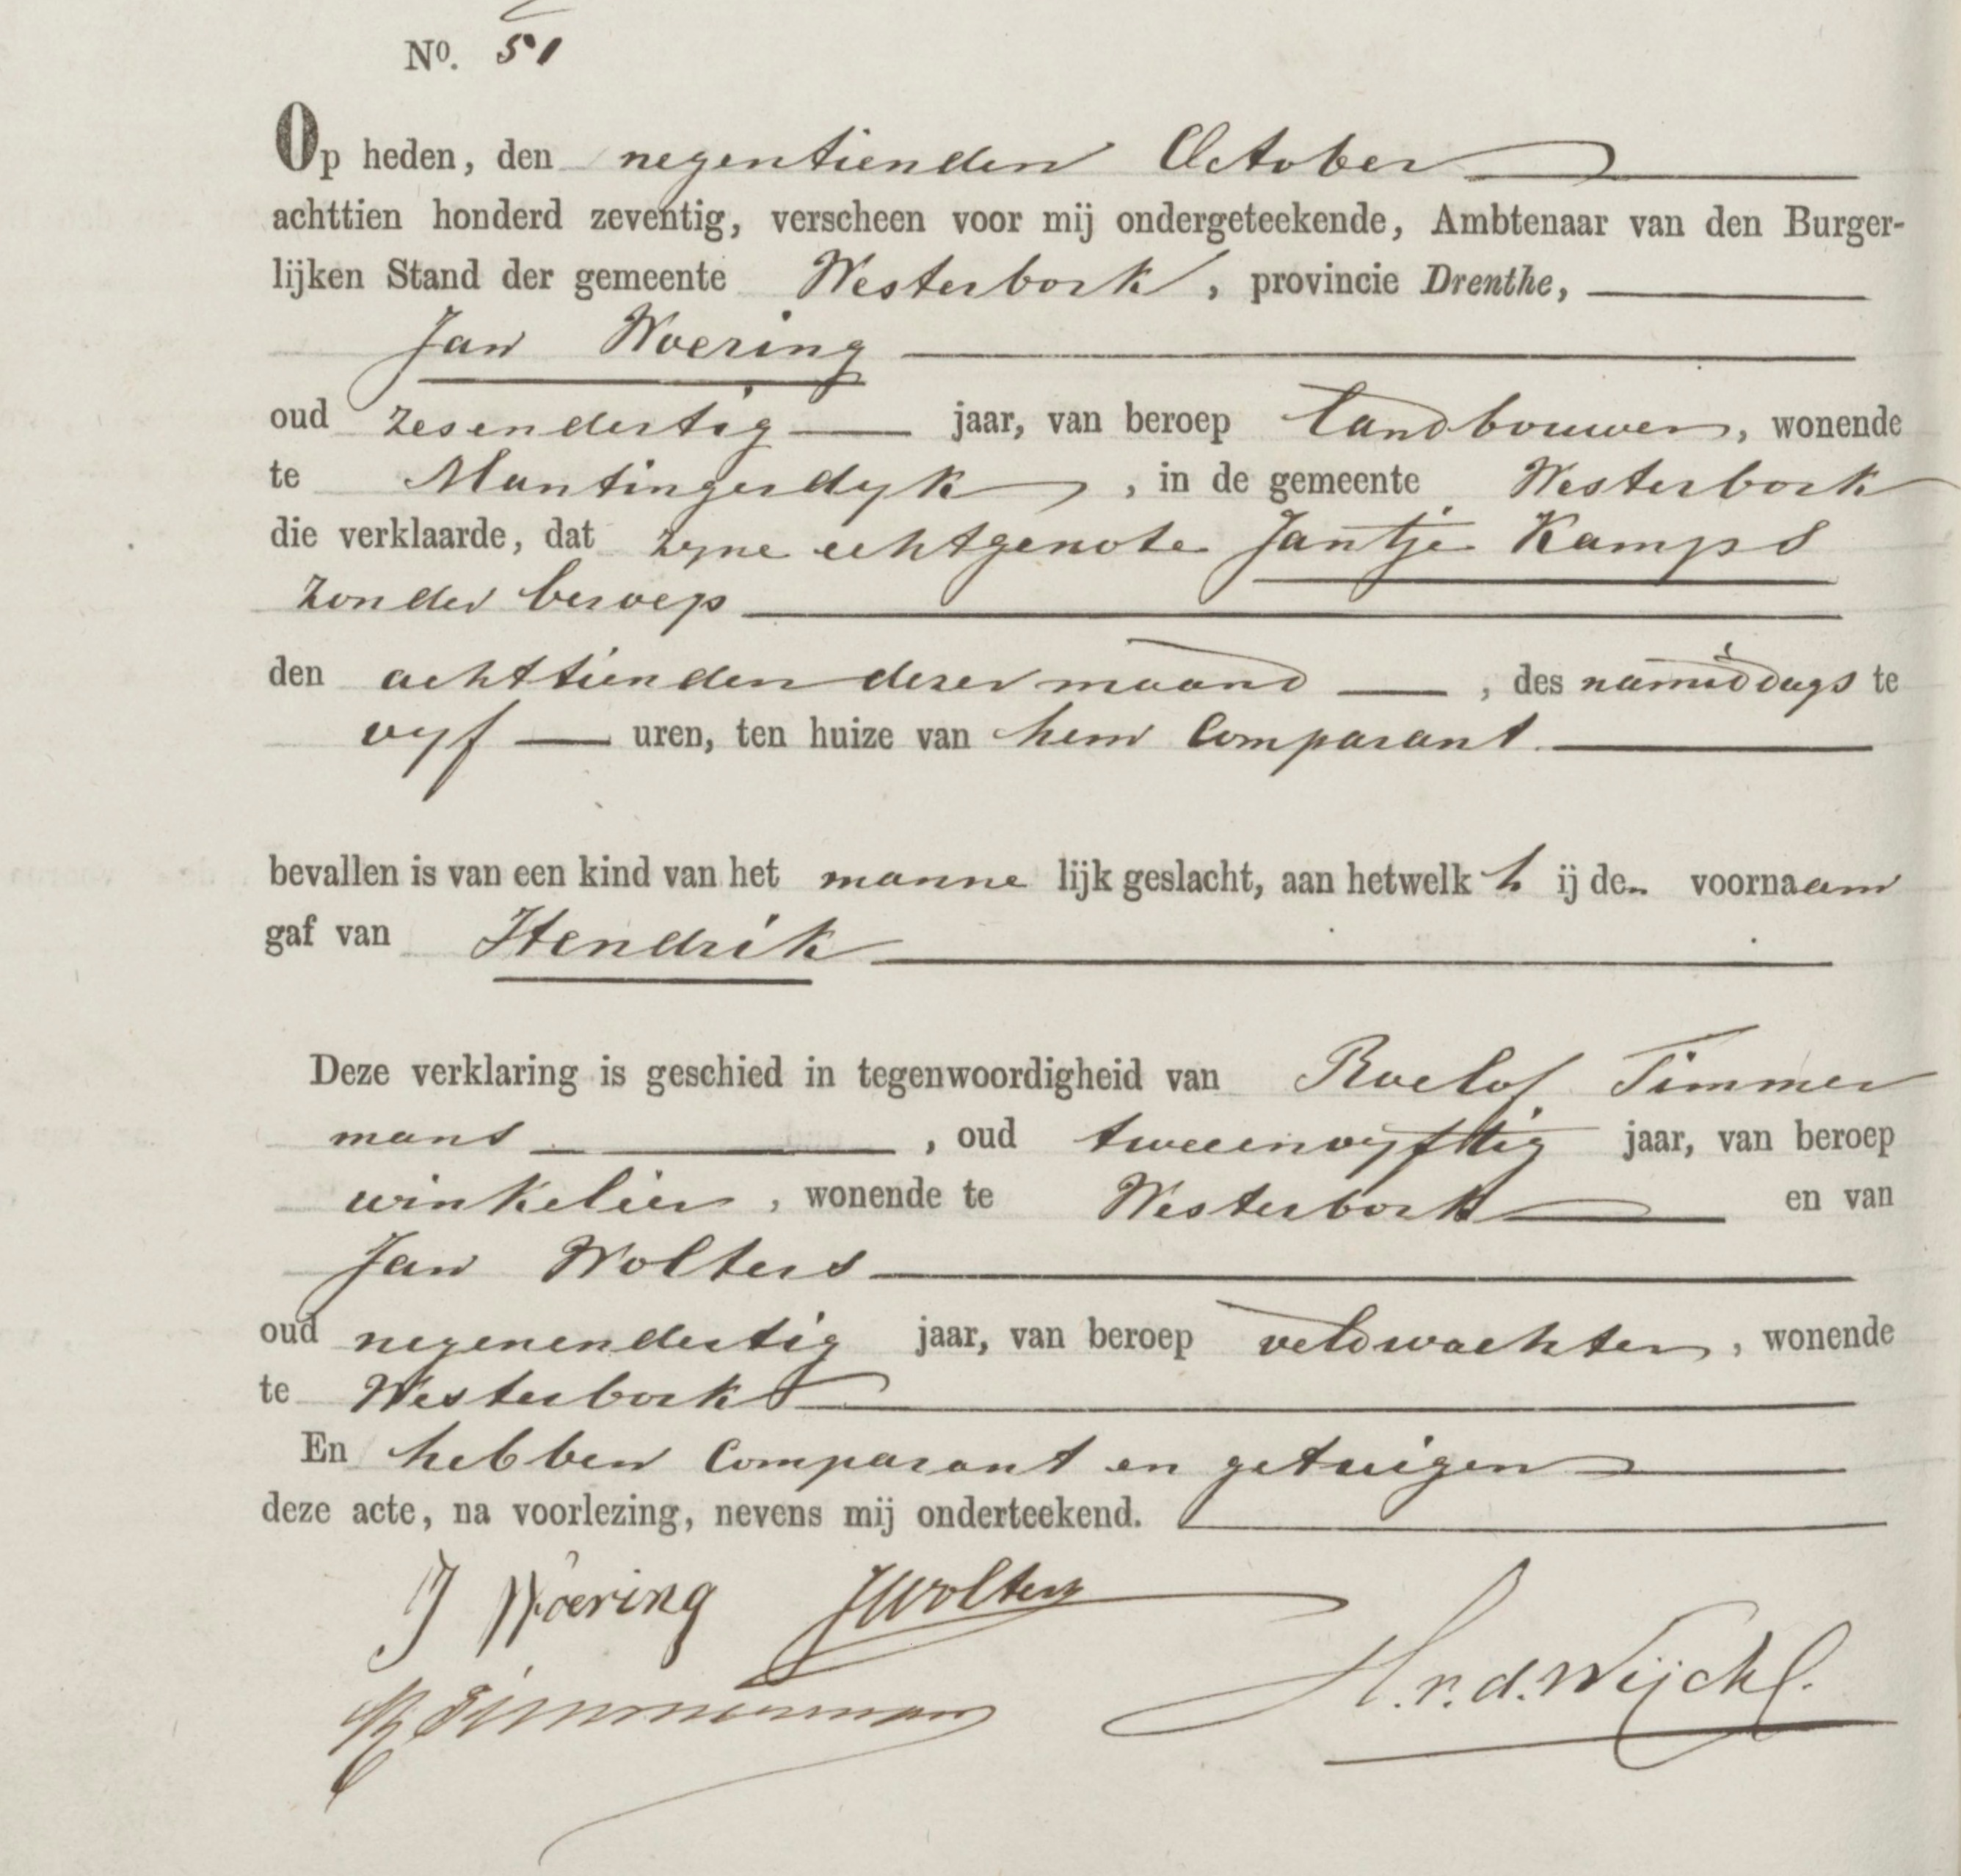 No. 51
Op heden, den negentienden October
achttien honderd zeventig, verscheen voor mij ondergeteekende, Ambtenaar van den Burger-
lijken Stand der gemeente Westerbork, provincie Drenthe,
Jan Woering
oud zesendertig jaar, van beroep landbouwer, wonende
te Mantingerdyk, in de gemeente Westerbork
die verklaarde, dat zyne echtgenote Jantje Kamps
zonder beroep
den achttienden dezer maand, des namiddags te
vyf uren, ten huize van hem Comparant.
bevallen is van een kind van het mannelijk geslacht, aan hetwelk hij den voornaam
gaf van Hendrik
Deze verklaring is geschied in tegenwoordigheid van Roelof Timmer
mans, oud tweeenvyftig jaar, van beroep
winkelier, wonende te Westerbork en van
Jan Wolters
oud negenendertig jaar, van beroep veldwachter, wonende
te Westerbork
En hebben Comparant en getuigen
deze acte, na voorlezing, nevens mij onderteekend.
J Woering JWolters
R Timmerman H.v.d.Wijck